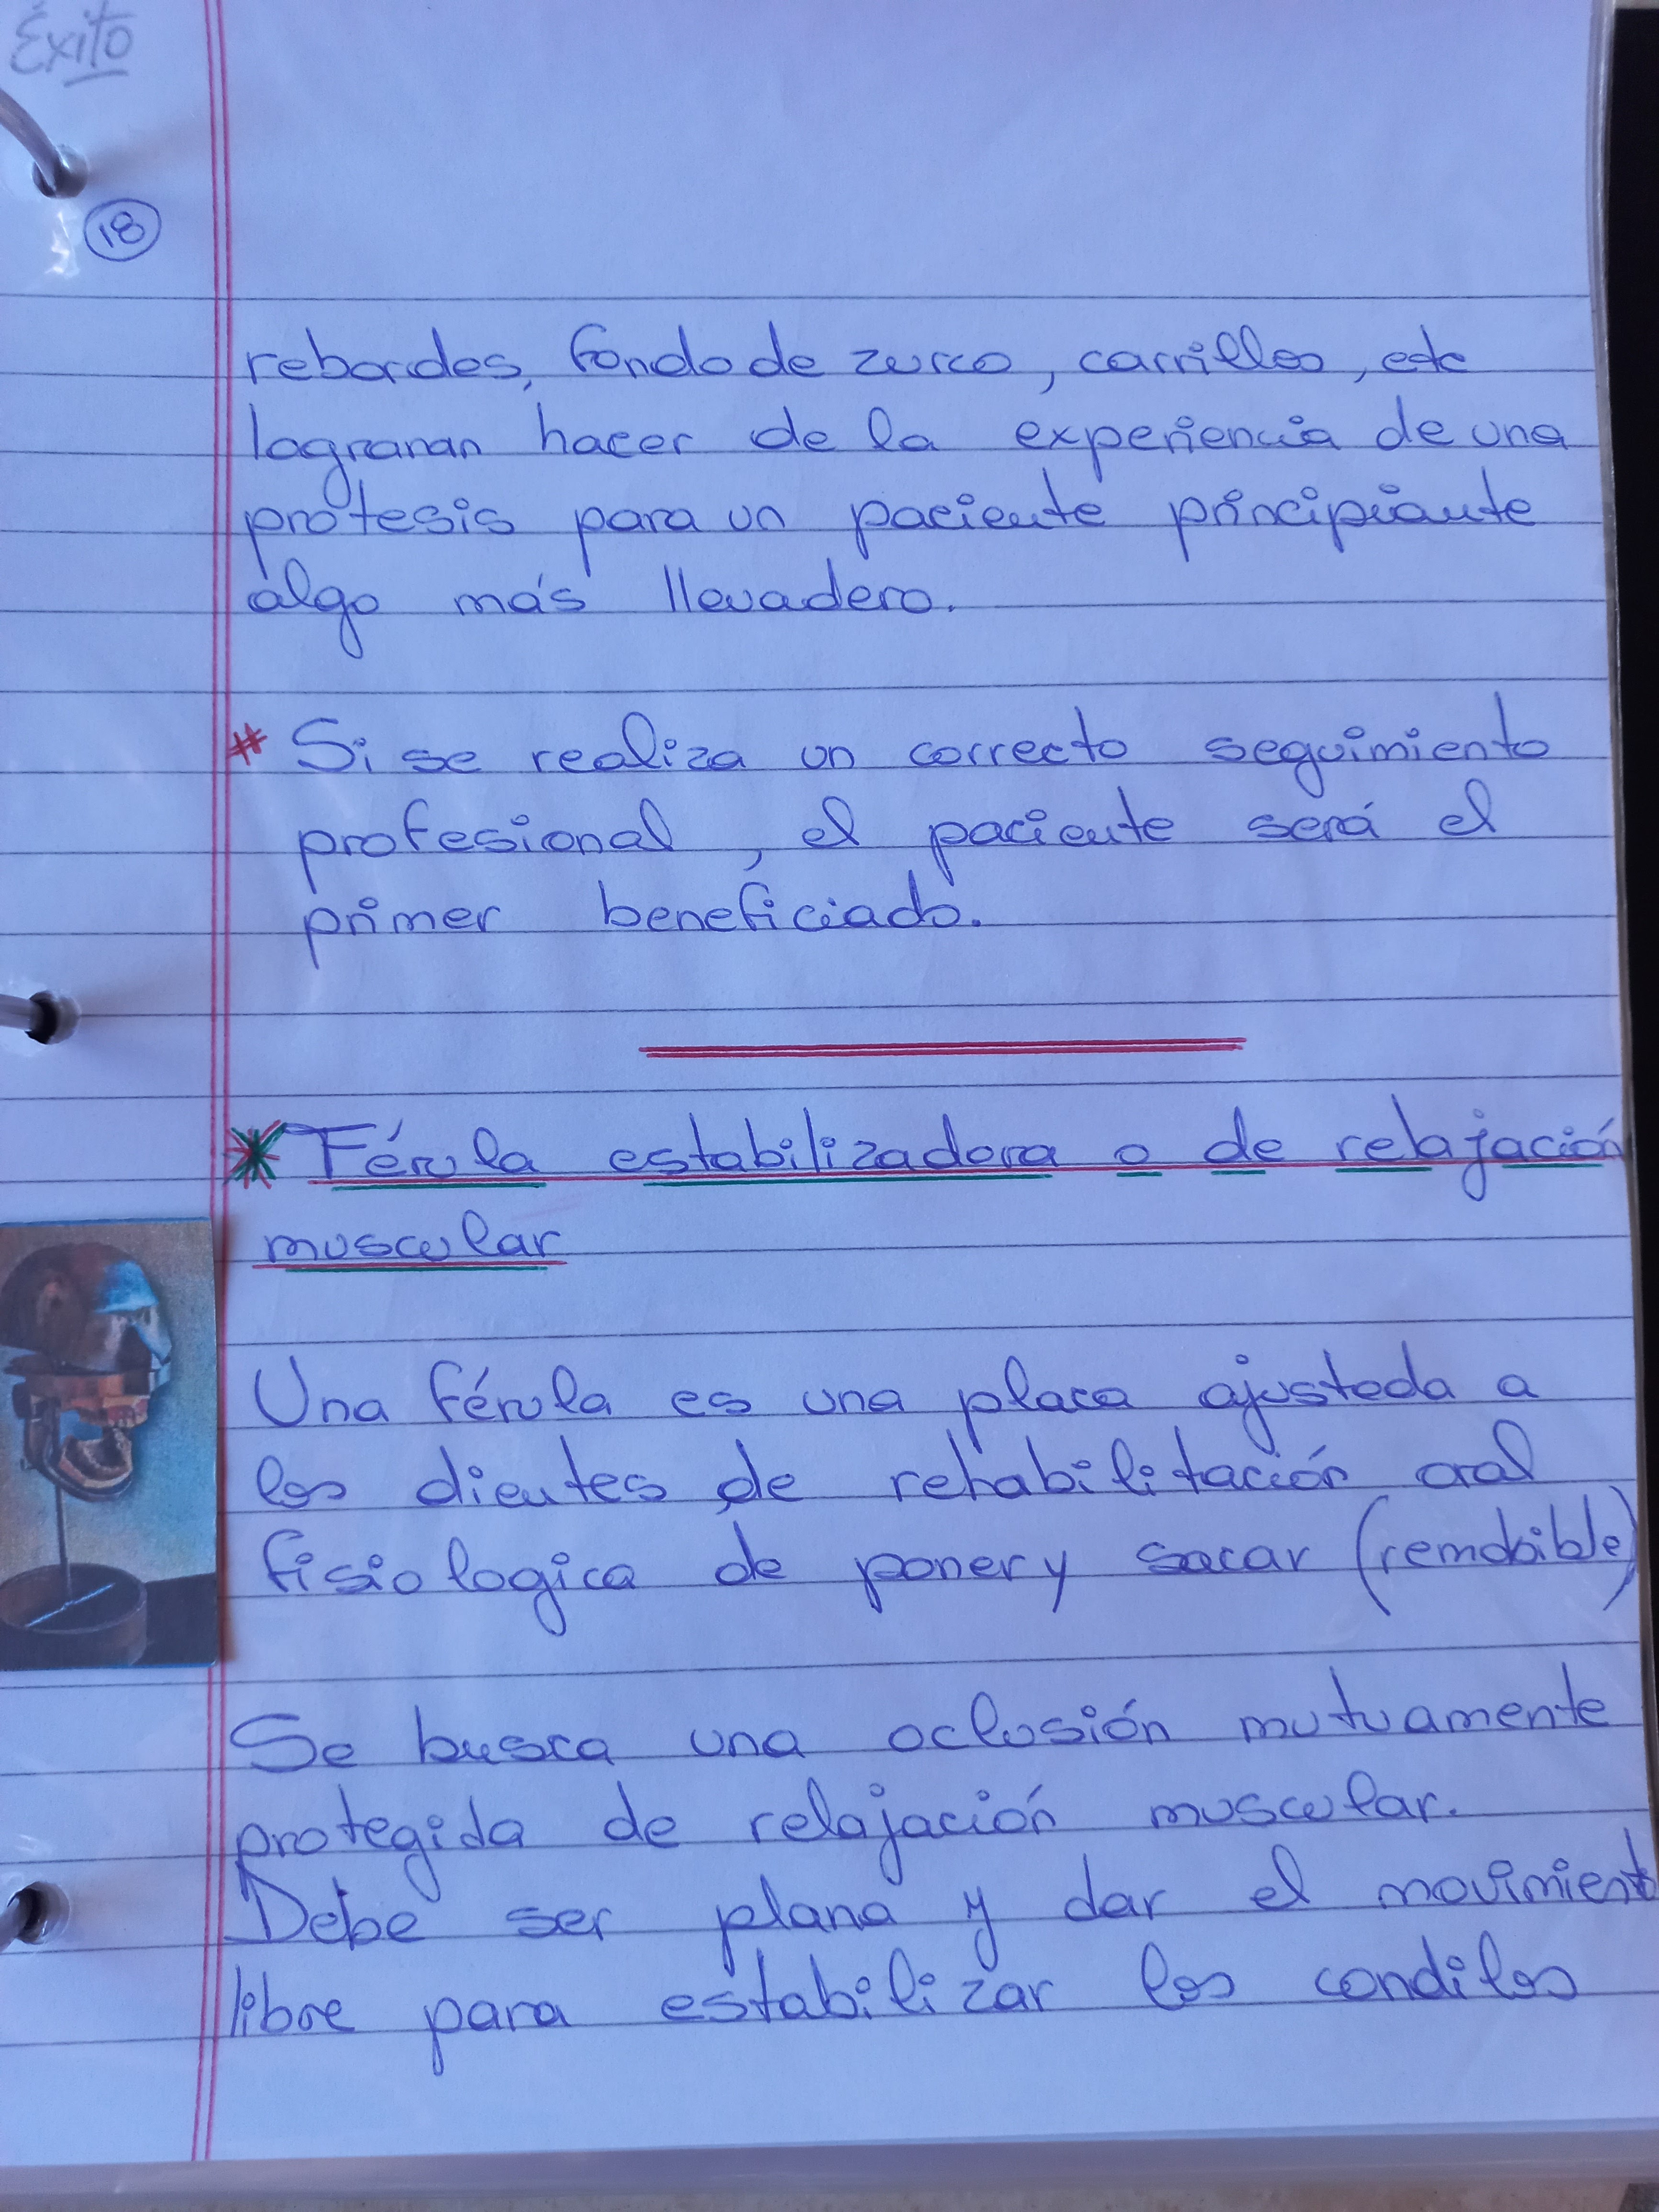 Éxito
18
rebordes, fondo de zurco, carrillos, etc
lograran hacer de la experiencia de una
prótesis para un paciente principiante
algo más llevadero.
* Si se realiza un correcto seguimiento
profesional, el paciente será el
primer beneficiado.
* Férula estabilizadora o de relajación
muscular
Una férula es una placa ajustada a
los dientes de rehabilitación oral
fisiologica de poner y sacar (removible)
Se busca una oclusión mutuamente
protegida de relajación muscular.
Debe ser plana y dar el movimiento
libre para estabilizar los condilos